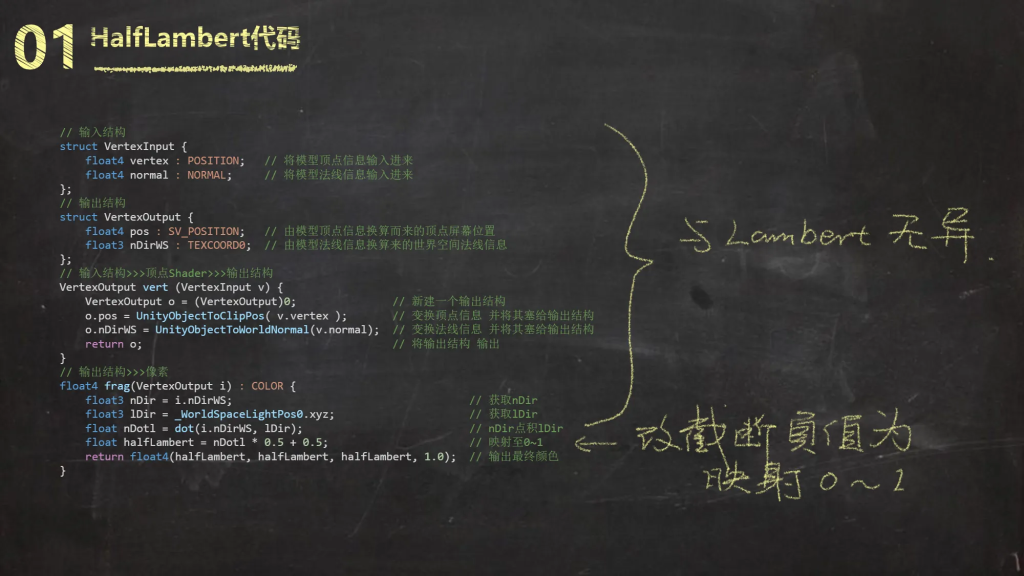 01 HalfLambert代码
// 输入结构
struct VertexInput {
float4 vertex : POSITION; // 将模型顶点信息输入进来
float4 normal : NORMAL; // 将模型法线信息输入进来
};
// 输出结构
struct VertexOutput {
float4 pos : SV_POSITION; // 由模型顶点信息换算而来的顶点屏幕位置
float3 nDirWS : TEXCOORD0; // 由模型法线信息换算来的世界空间法线信息
};
// 输入结构>>>顶点Shader>>>输出结构
VertexOutput vert (VertexInput v) {
VertexOutput o = (VertexOutput)0; // 新建一个输出结构
o.pos = UnityObjectToClipPos( v.vertex ); // 变换顶点信息 并将其塞给输出结构
o.nDirWS = UnityObjectToWorldNormal(v.normal); // 变换法线信息 并将其塞给输出结构
return o; // 将输出结构 输出
}
// 输出结构>>>像素
float4 frag(VertexOutput i) : COLOR {
float3 nDir = i.nDirWS; // 获取nDir
float3 lDir = _WorldSpaceLightPos0.xyz; // 获取lDir
float nDotl = dot(i.nDirWS, lDir); // nDir点积lDir
float halfLambert = nDotl * 0.5 + 0.5; // 映射至0~1
return float4(halfLambert, halfLambert, halfLambert, 1.0); // 输出最终颜色
}
与Lambert 无异.
← 改截断负值为
映射 0~1